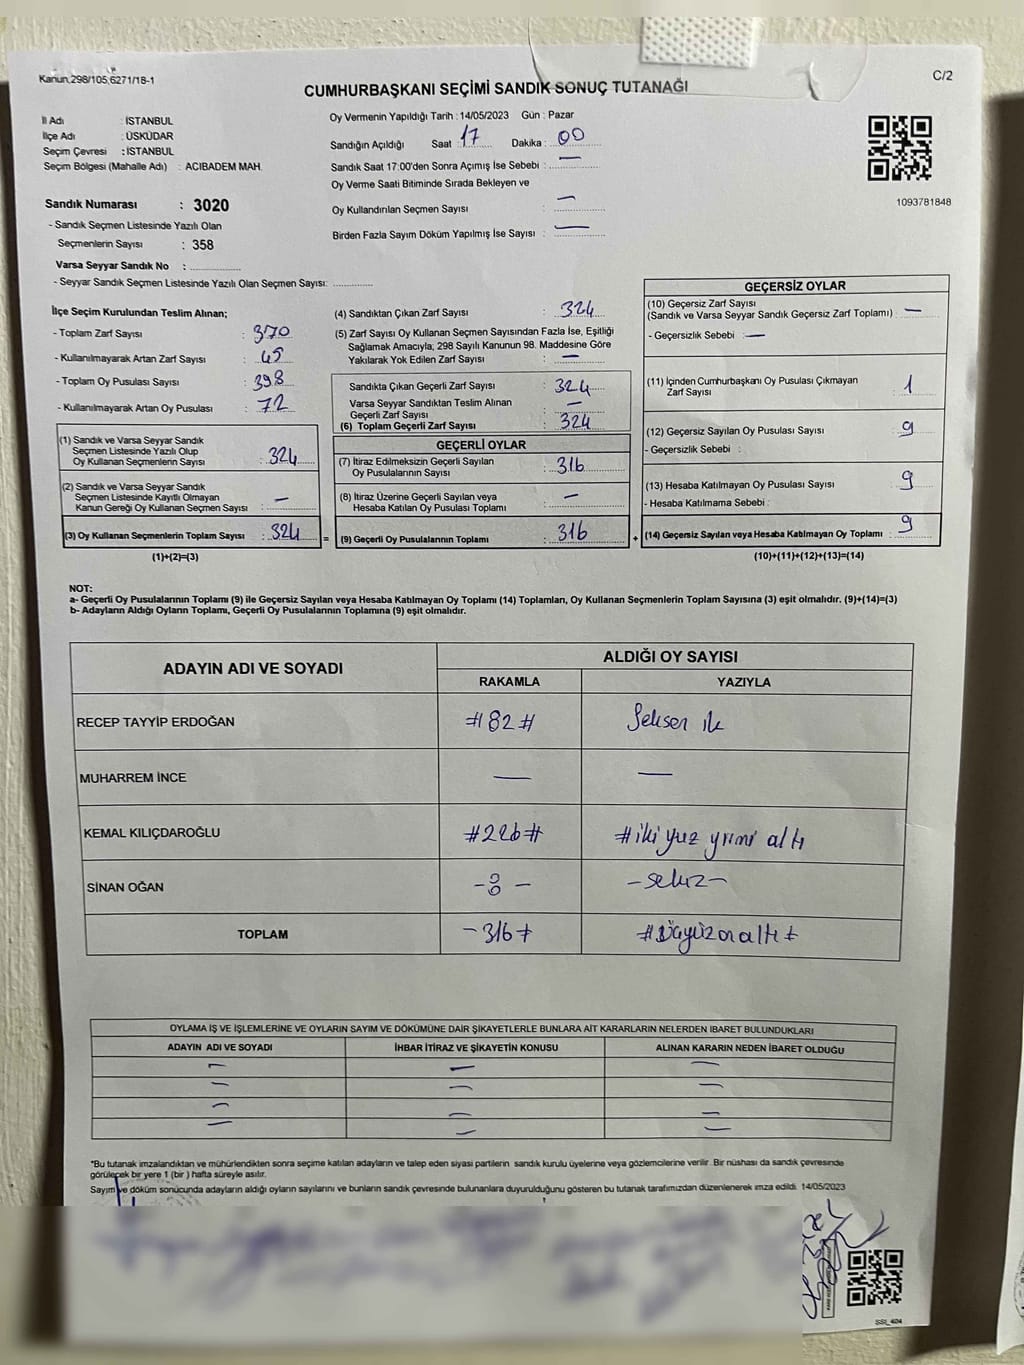 Kanun 298/105,6271/18-1
C/2
CUMHURBAŞKANI SEÇİMİ SANDIK SONUÇ TUTANAĞI
İl Adı : İSTANBUL
İlçe Adı : ÜSKÜDAR
Seçim Çevresi : İSTANBUL
Seçim Bölgesi (Mahalle Adı) : ACIBADEM MAH.
Sandık Numarası : 3020
- Sandık Seçmen Listesinde Yazılı Olan
Seçmenlerin Sayısı : 358
Varsa Seyyar Sandık No :
- Seyyar Sandık Seçmen Listesinde Yazılı Olan Seçmen Sayısı:
Oy Vermenin Yapıldığı Tarih : 14/05/2023 Gün : Pazar
Sandığın Açıldığı Saat : 17 Dakika : 00
Sandık Saat 17:00'den Sonra Açımış İse Sebebi : —
Oy Verme Saati Bitiminde Sırada Bekleyen ve
Oy Kullandırılan Seçmen Sayısı : —
Birden Fazla Sayım Döküm Yapılmış İse Sayısı : —
1093781848
İlçe Seçim Kurulundan Teslim Alınan;
- Toplam Zarf Sayısı : 370
- Kullanılmayarak Artan Zarf Sayısı : 45
- Toplam Oy Pusulası Sayısı : 398
- Kullanılmayarak Artan Oy Pusulası : 72
(1) Sandık ve Varsa Seyyar Sandık
Seçmen Listesinde Yazılı Olup
Oy Kullanan Seçmenlerin Sayısı : 324
(2) Sandık ve Varsa Seyyar Sandık
Seçmen Listesinde Kayıtlı Olmayan
Kanun Gereği Oy Kullanan Seçmen Sayısı : —
(3) Oy Kullanan Seçmenlerin Toplam Sayısı : 324
(1)+(2)=(3)
(4) Sandıktan Çıkan Zarf Sayısı : 324
(5) Zarf Sayısı Oy Kullanan Seçmen Sayısından Fazla İse, Eşitliği
Sağlamak Amacıyla; 298 Sayılı Kanunun 98. Maddesine Göre
Yakılarak Yok Edilen Zarf Sayısı : —
Sandıkta Çıkan Geçerli Zarf Sayısı : 324
Varsa Seyyar Sandıktan Teslim Alınan
Geçerli Zarf Sayısı : —
(6) Toplam Geçerli Zarf Sayısı : 324
GEÇERLİ OYLAR
(7) İtiraz Edilmeksizin Geçerli Sayılan
Oy Pusulalarının Sayısı : 316
(8) İtiraz Üzerine Geçerli Sayılan veya
Hesaba Katılan Oy Pusulası Toplamı : —
= (9) Geçerli Oy Pusulalarının Toplamı : 316 +
GEÇERSİZ OYLAR
(10) Geçersiz Zarf Sayısı
(Sandık ve Varsa Seyyar Sandık Geçersiz Zarf Toplamı) : —
- Geçersizlik Sebebi : —
(11) İçinden Cumhurbaşkanı Oy Pusulası Çıkmayan
Zarf Sayısı : 1
(12) Geçersiz Sayılan Oy Pusulası Sayısı : 9
- Geçersizlik Sebebi :
(13) Hesaba Katılmayan Oy Pusulası Sayısı : 9
- Hesaba Katılmama Sebebi :
(14) Geçersiz Sayılan veya Hesaba Katılmayan Oy Toplamı : 9
(10)+(11)+(12)+(13)=(14)
NOT:
a- Geçerli Oy Pusulalarının Toplamı (9) ile Geçersiz Sayılan veya Hesaba Katılmayan Oy Toplamı (14) Toplamları, Oy Kullanan Seçmenlerin Toplam Sayısına (3) eşit olmalıdır. (9)+(14)=(3)
b- Adayların Aldığı Oyların Toplamı, Geçerli Oy Pusulalarının Toplamına (9) eşit olmalıdır.
ADAYIN ADI VE SOYADI
ALDIĞI OY SAYISI
RAKAMLA YAZIYLA
RECEP TAYYİP ERDOĞAN #82# Seksen ik
MUHARREM İNCE — —
KEMAL KILIÇDAROĞLU #226# #iki yuz yrimi altı
SİNAN OĞAN -8- -sekiz-
TOPLAM -316# #Üçyüzonaltı#
OYLAMA İŞ VE İŞLEMLERİNE VE OYLARIN SAYIM VE DÖKÜMÜNE DAİR ŞİKAYETLERLE BUNLARA AİT KARARLARIN NELERDEN İBARET BULUNDUKLARI
ADAYIN ADI VE SOYADI İHBAR İTİRAZ VE ŞİKAYETİN KONUSU ALINAN KARARIN NEDEN İBARET OLDUĞU
— — —
— — —
— — —
— — —
*Bu tutanak imzalandıktan ve mühürlendikten sonra seçime katılan adayların ve talep eden siyasi partilerin sandık kurulu üyelerine veya gözlemcilerine verilir. Bir nüshası da sandık çevresinde
görülecek bir yere 1 (bir ) hafta süreyle asılır.
Sayım ve döküm sonucunda adayların aldığı oyların sayılarını ve bunların sandık çevresinde bulunanlara duyurulduğunu gösteren bu tutanak tarafımızdan düzenlenerek imza edildi. 14/05/2023
SSI_404